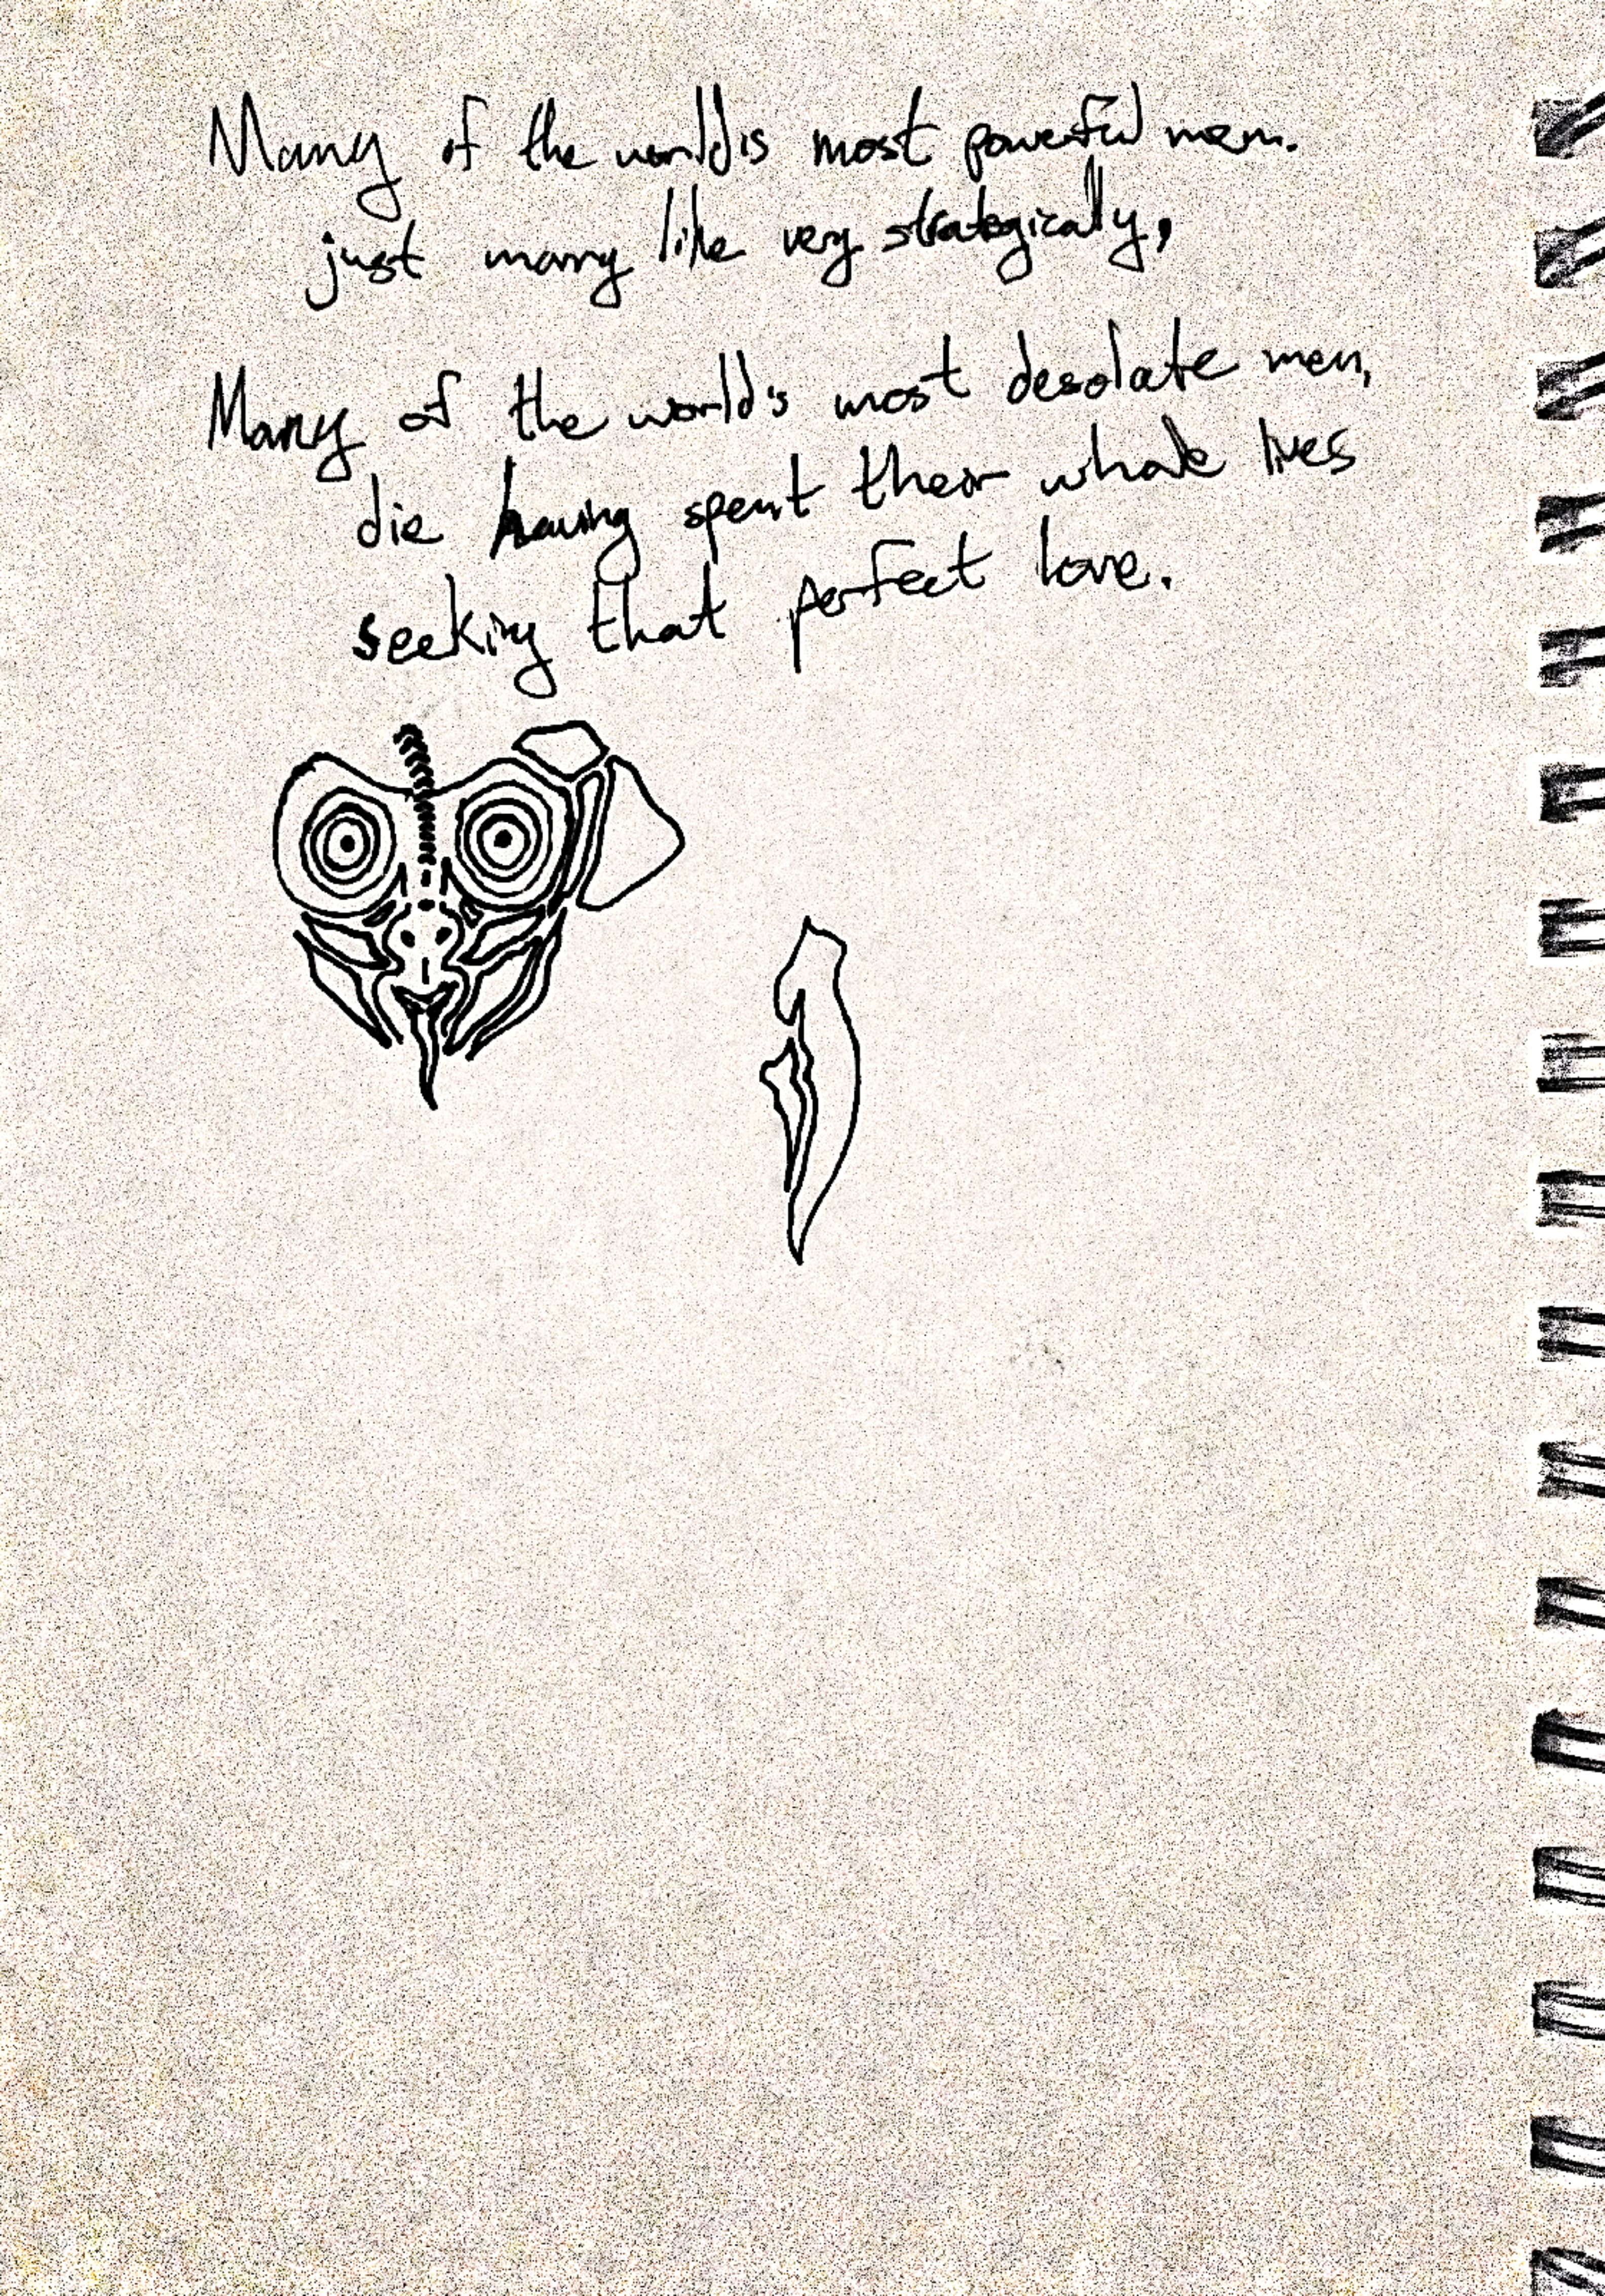 Many of the world's most powerful men.
just marry like very strategically,
Many of the world's most desolate men,
die having spent their whole lives
seeking that perfect love.